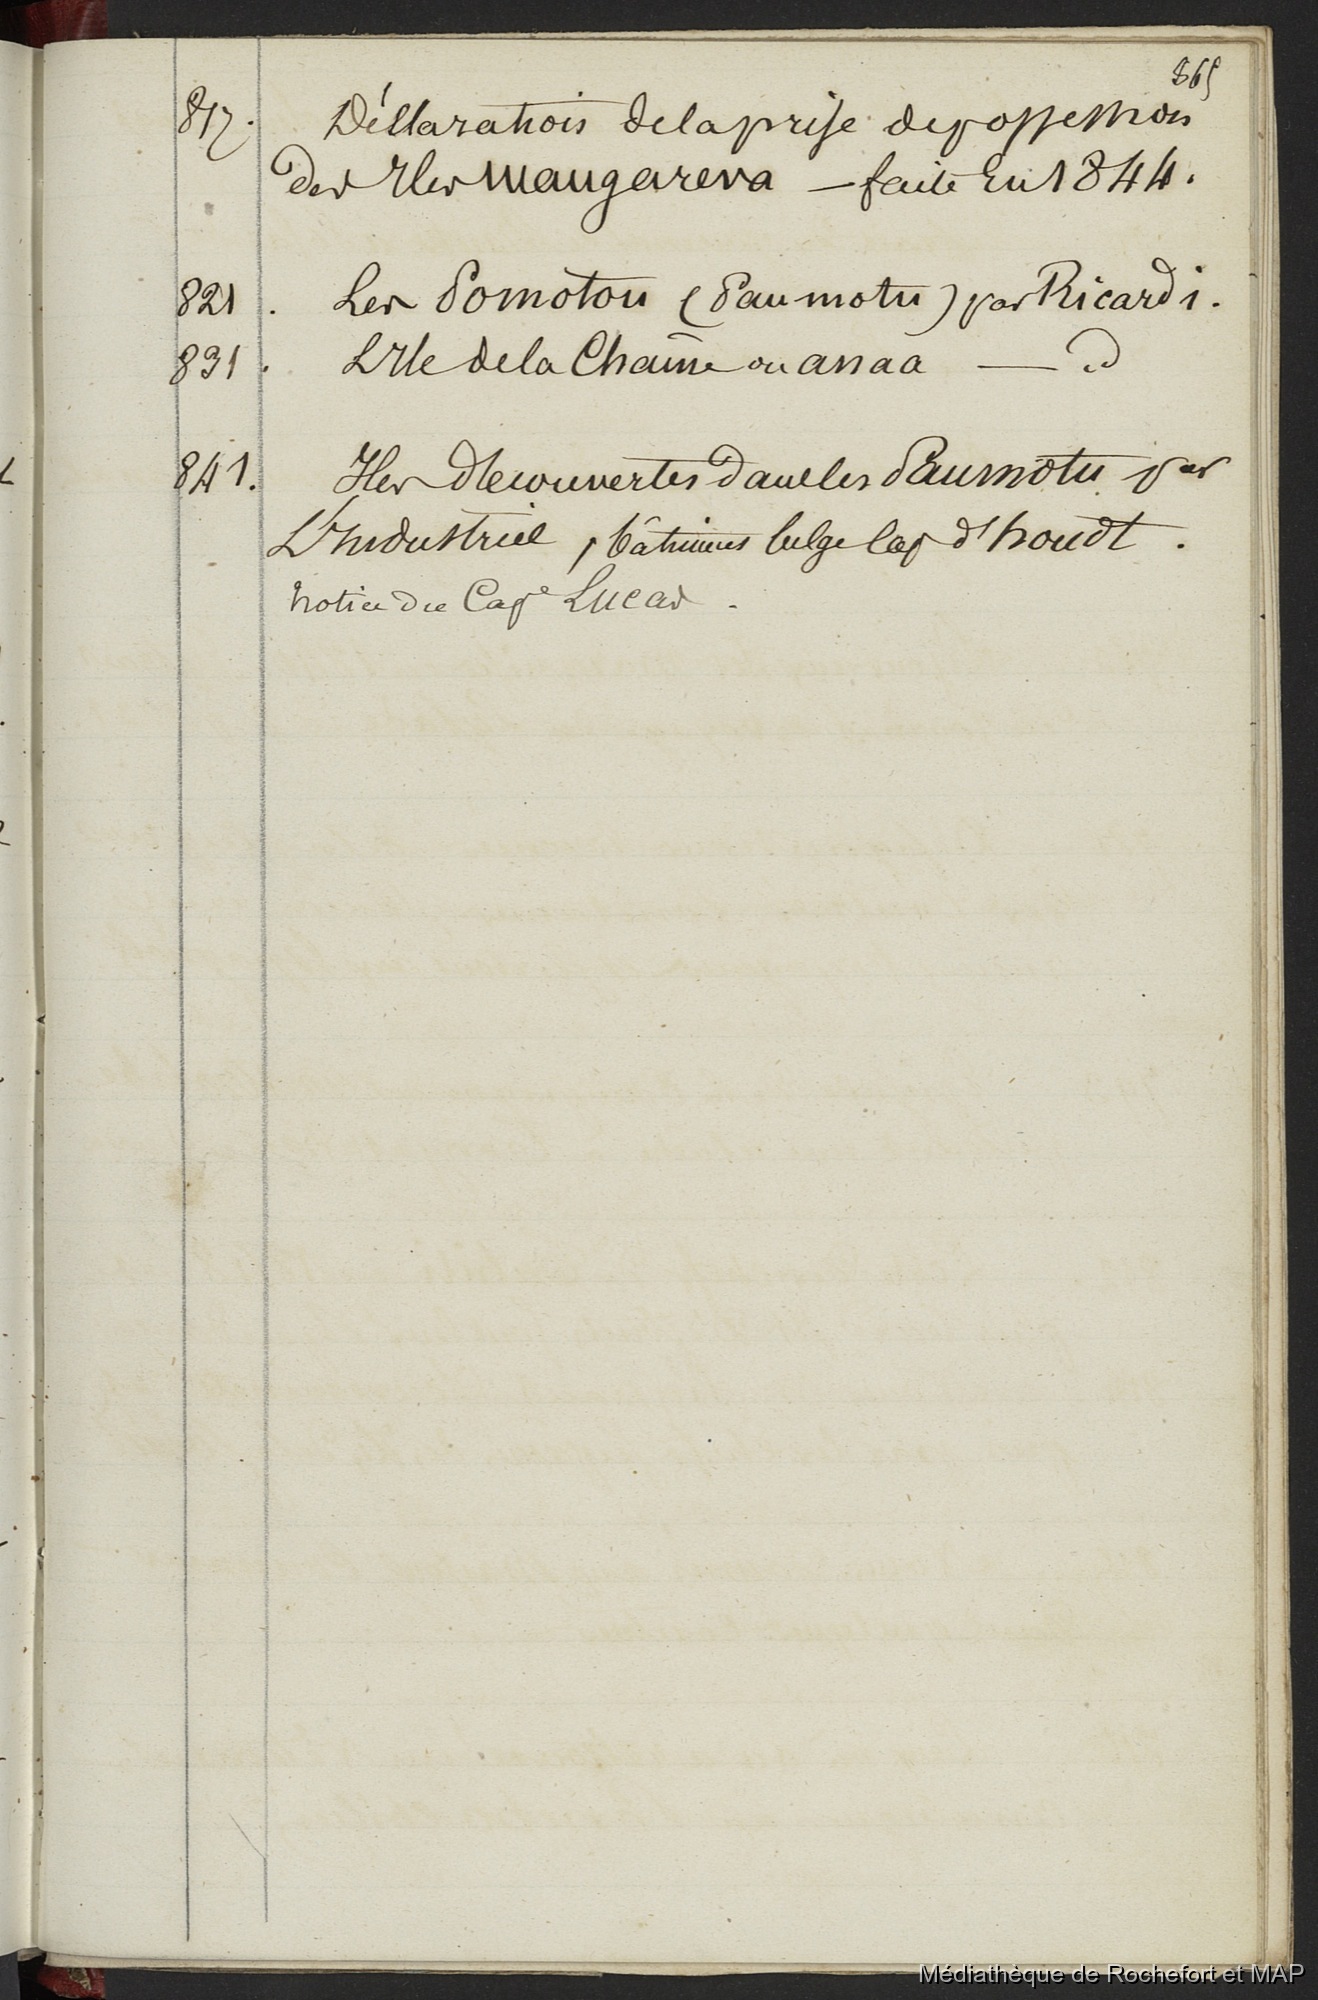 865
817. Déclaration de la prise de possession
des Iles Mangareva — faite en 1844.
821. Les Pomotou (Paumotu) par Ricardi.
831. L'Ile de la Chaîne ou anaa — do
841. Iles découvertes dans les Paumotu par
L'Industriel, bâtiment belge cap d'houdt.
notice du Cape Lucas.
Médiathèque de Rochefort et MAP